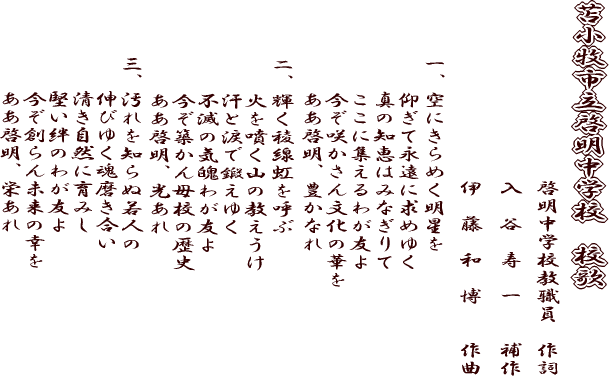 苫小牧市立啓明中学校　校歌
啓明中学校教職員　作詞
入谷寿一　補作
伊藤和博　作曲
一、空にきらめく明星を
仰ぎて永遠に求めゆく
真の知恵はみなぎりて
ここに集えるわが友よ
今ぞ咲かさん文化の華を
ああ啓明、豊かなれ
二、輝く稜線虹を呼ぶ
火を噴く山の教えうけ
汗と涙で鍛えゆく
不滅の気魄わが友よ
今ぞ築かん母校の歴史
ああ啓明、光あれ
三、汚れを知らぬ若人の
伸びゆく魂磨き合い
清き自然に育みし
堅い絆のわが友よ
今ぞ創らん未来の幸を
ああ啓明、栄あれ